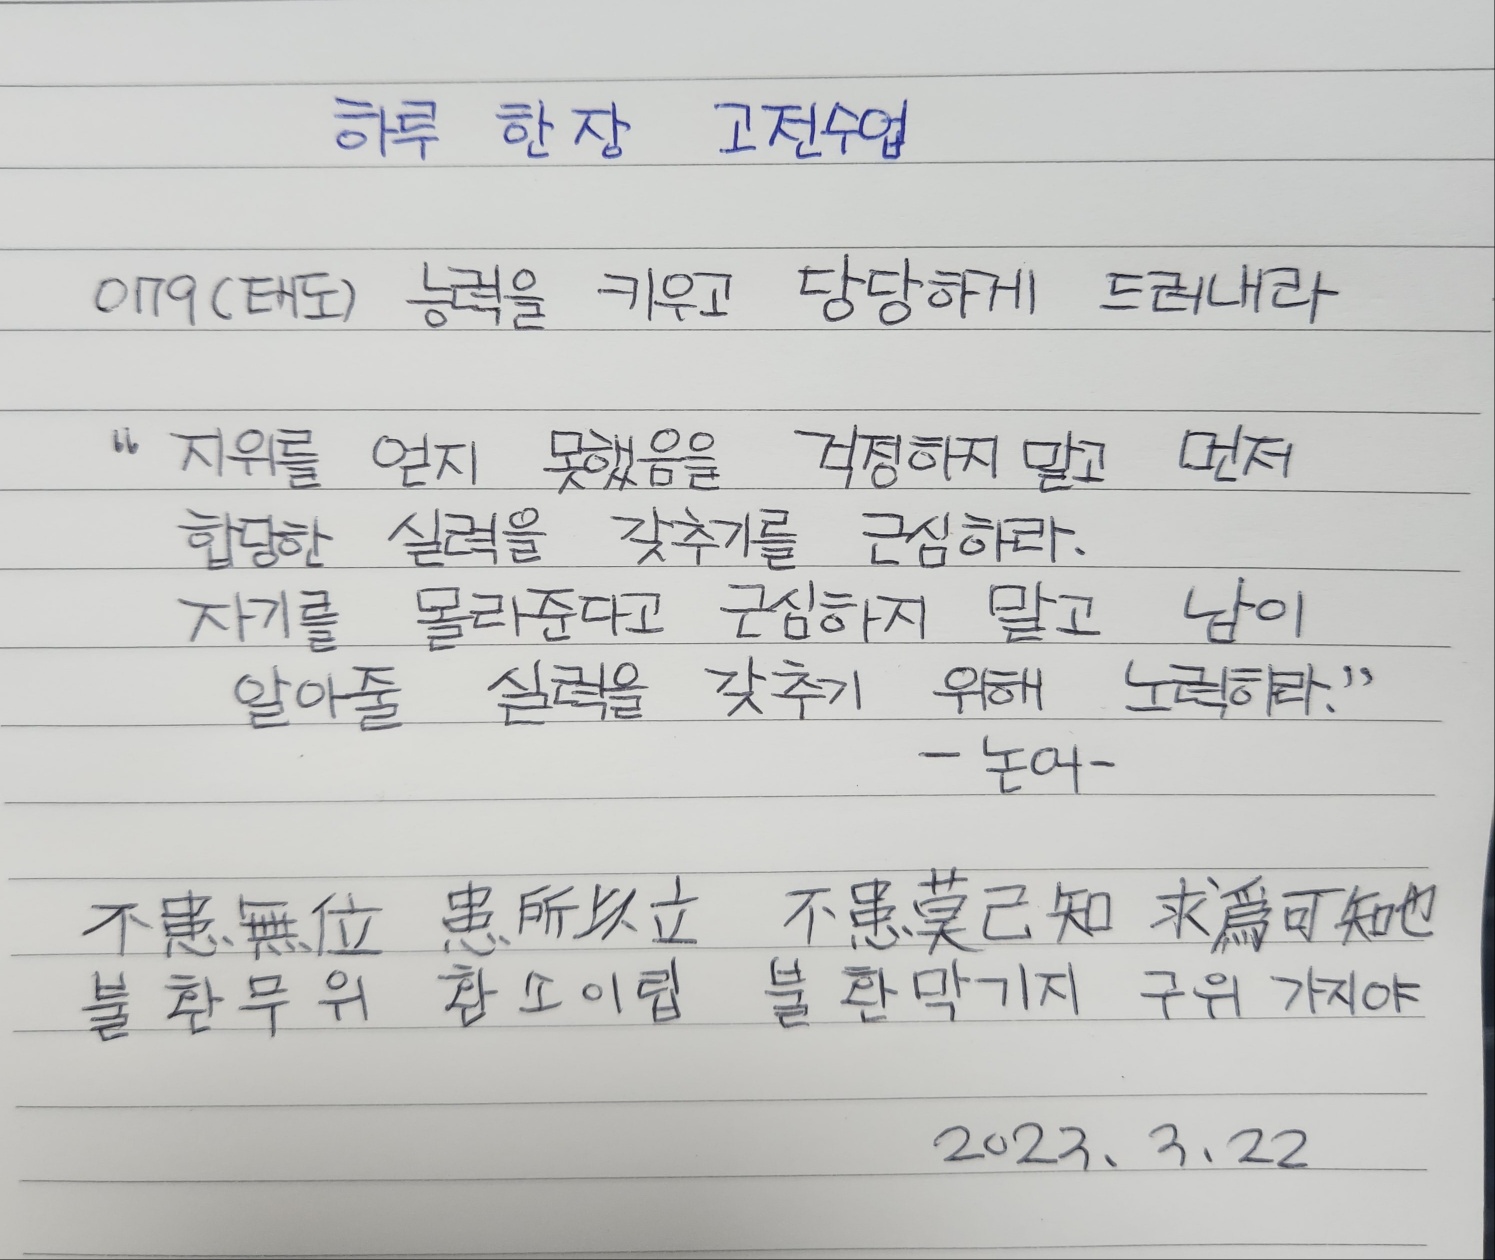 하루 한장 고전수업
079(태도) 능력을 키우고 당당하게 드러내라
“지위를 얻지 못했음을 걱정하지 말고 먼저
합당한 실력을 갖추기를 근심하라.
자기를 몰라준다고 근심하지 말고 남이
알아줄 실력을 갖추기 위해 노력하라.”
- 논어 -
不患無位 患所以立 不患莫己知 求爲可知也
불환무위 환소이립 불환막기지 구위가지야
2023. 3. 22